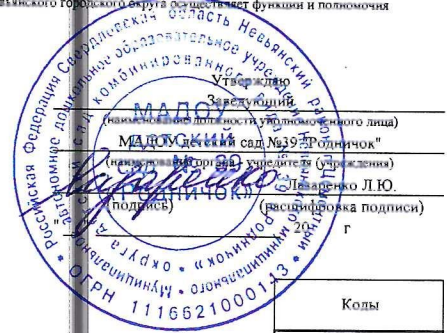 вьянского городского округа осуществляет функции и полномочия
Утверждаю
Заведующий
(наименование должности уполномоченного лица)
МАДОУ детский сад №39 "Родничок"
(наименование органа - учредителя (учреждения)
Лазаренко Л.Ю.
(подпись) (расшифровка подписи)
" " 20 г
Коды
Российская Федерация Свердловская область Невьянский район
ОГРН 1116621000113
МАДОУ
ДЕТСКИЙ
РОДНИЧОК»